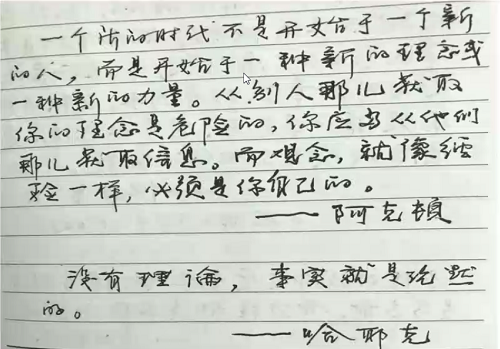 一个新的时代不是开始于一个新
的人，而是开始于一种新的理念或
一种新的力量。从别人那儿获取
你的理念是危险的，你应当从他们
那儿获取信息。而观念，就像经
验一样，必须是你自己的。
——阿克頓
没有理論，事实就是沉默
的。
——哈耶克